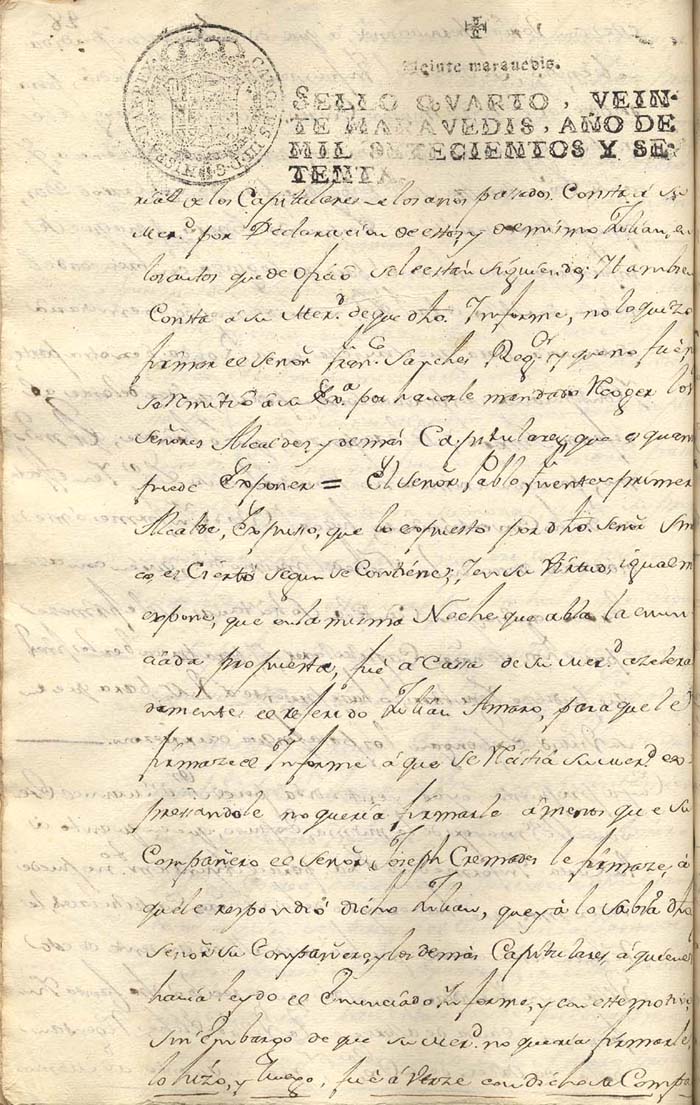 Veinte maravedis.
SELLO QVARTO, VEIN-
TE MARAVEDIS, AÑO DE
MIL SETECIENTOS Y SE-
TENTA.
de los Capitulares de los años pasados. Consta á su
Mer.d por Declaracion de estos, y de el mismo Julian, en
los autos que de ofició se le están siguiendo; Y tambien
Consta á su Mer.d de que dho. Informe, no lo quizo
firmar el señor Fran.co Sanches Reg.or y que no fué
se rremitió á su Ex.a por haverle mandado Recoger los
señores Alcaldes, y demás Capitulares, que es quanto
puede Exponer = El señor Pablo fuentes primer
Alcalde, Expusso, que lo expuesto por dho. señor Sin
co, es Cierto segun se Contiene; Y en su Virtud, igualm
expone, que en la misma Noche que abla la enun
ciada propuesta, fué á Cassa de su Mer.d azelera
damente el referido Julian Amaro, para que le
firmaze el Informe á que se su Mer.d ex
pressandole no queria firmarle á menos que su
Compañero el señor Joseph Cremades le firmaze, á
que le respondió dicho Julian, que yá lo sabia dho
señor su Compañero, y los demás Capitulares, á quienes
havia leydo el Enunciado Informe, y con este motivo
sin Embargo de que su Mer.d no queria firmarle
lo hizo, y luego, fué á verze con dicho su Compa